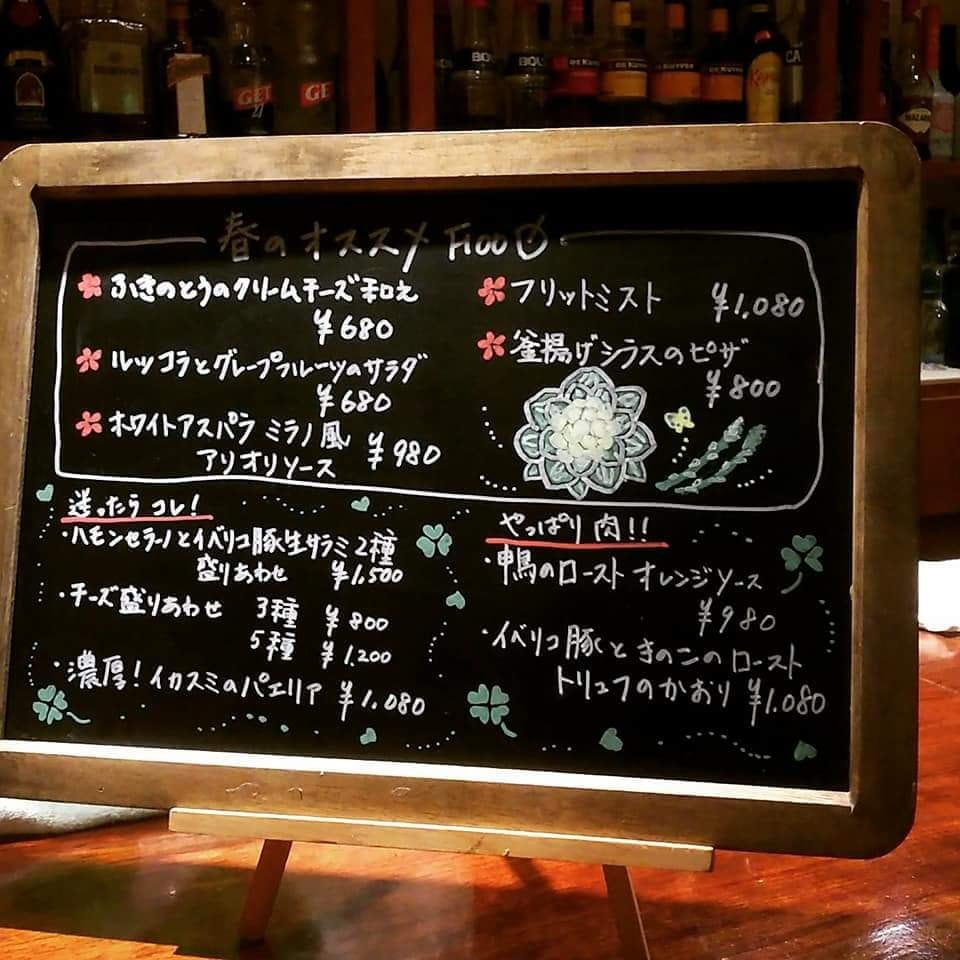 GET
27
GET
BOLS
BOLS
DE KUYPER
DE KUYPER
DE KUYPER
春のオススメ FOOD
ふきのとうのクリームチーズ和え
¥680
ルッコラとグレープフルーツのサラダ
¥680
ホワイトアスパラ ミラノ風 ¥980
アリオリソース
フリットミスト ¥1,080
釜揚げシラスのピザ
¥800
迷ったらコレ!
・ハモンセラーノとイベリコ豚生サラミ2種
盛りあわせ ¥1,500
・チーズ盛りあわせ 3種 ¥800
5種 ¥1,200
・濃厚!イカスミのパエリア ¥1,080
やっぱり肉!!
・鴨のロースト オレンジソース
¥980
・イベリコ豚ときのこのロースト
トリュフのかおり ¥1,080